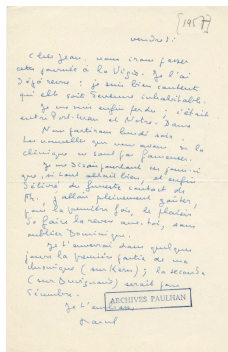 vendredi
[1957]
Cher Jean, nous irons passer
cette journée à la Vigie. Je l'ai
: je suis bien content
qu'elle soit devenue inhabitable.
Je me suis enfin perdu : c'était
entre Port-Man et Notre-Dame
Nous partirons lundi soir.
Les nouvelles que nous avons de la
clinique ne sont pas fameuses.
Je me disais pendant ces jours-ci
que, si tout allait bien, et enfin
délivré du funeste contact de
M., j'allais pleinement goûter,
pour la première fois, le plaisir
de faire la revue avec toi, sans
oublier Dominique.
Je t'enverrai dans quelques
jours la première partie de ma
chronique (sur ) ; la seconde
(sur Duvignaud) serait pour
Je t'embrasse
Marcel
ARCHIVES PAULHAN